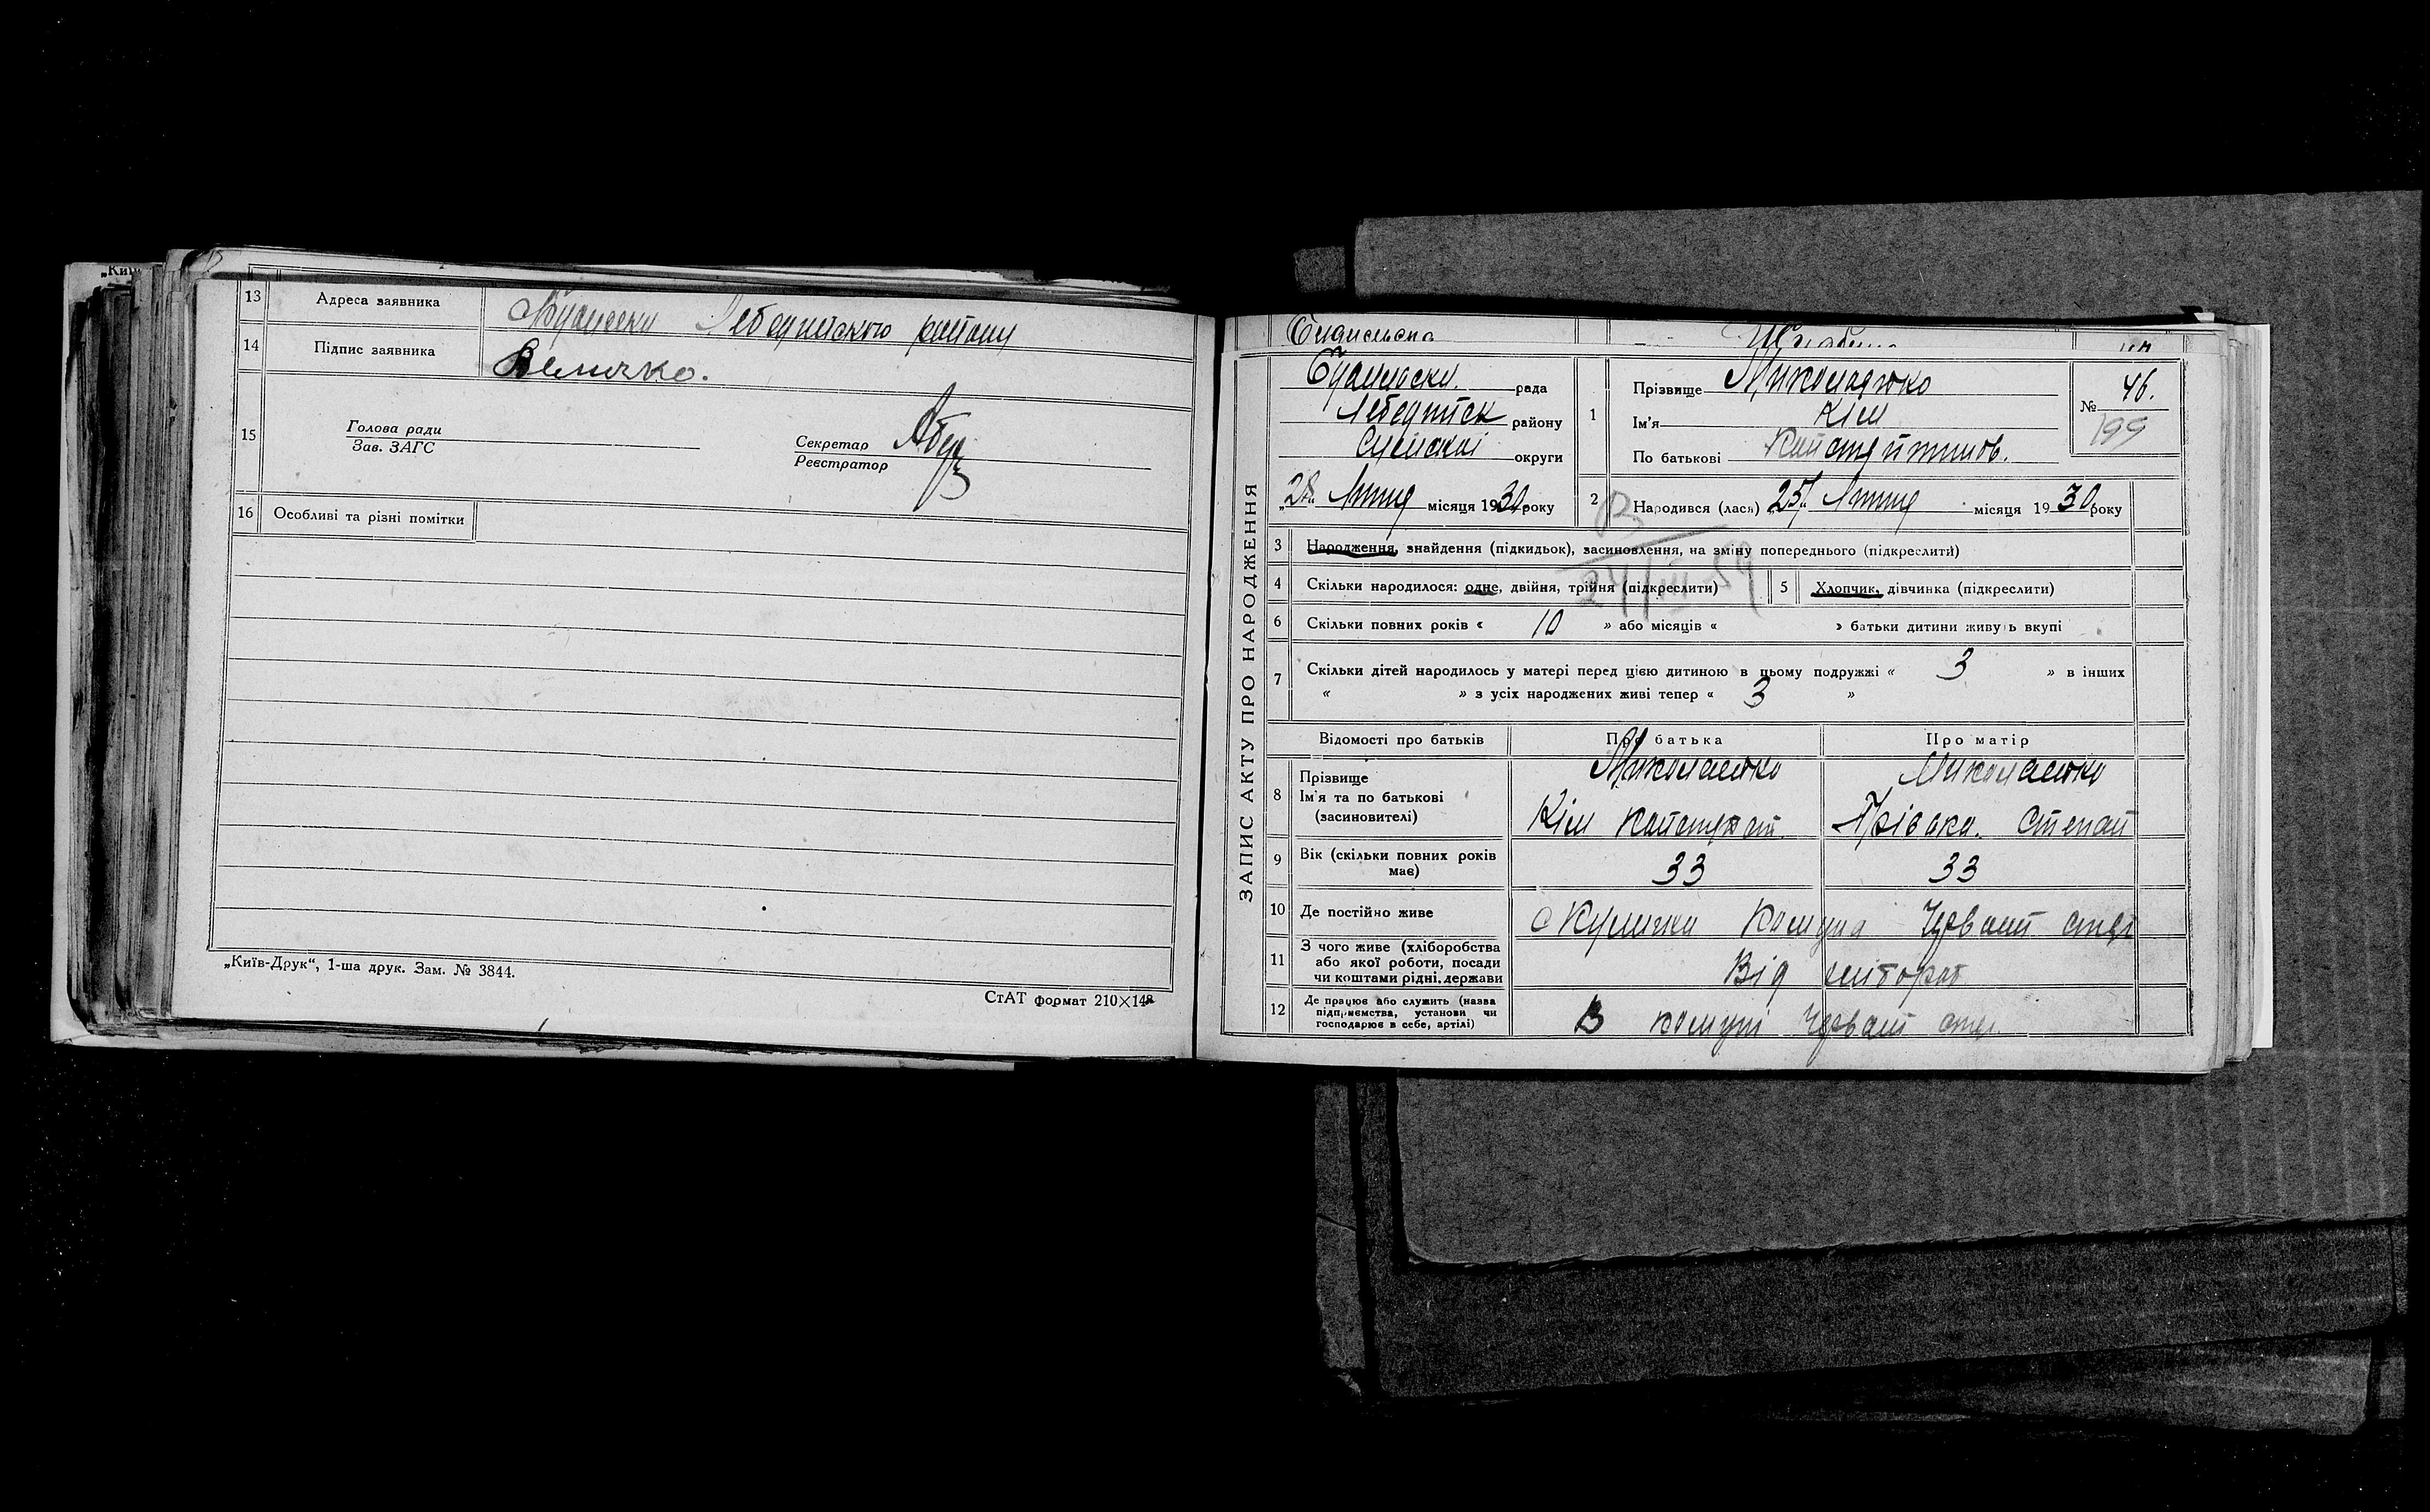 „Київ
13 Адреса заявника Лебединського району
14 Підпис заявника Величко.
15 Голова ради
Зав. ЗАГС
Секретар
Реєстратор
16 Особливі та різні помітки
„Київ-Друк“, 1-ша друк. Зам. № 3844.
СтАТ формат 210×148
ЗАПИС АКТУ ПРО НАРОДЖЕННЯ
рада
Лебединськ району
Сумської округи
„28“ Липня місяця 1930 року
1 Прізвище
Ім'я Кім
По батькові
№ 46.
199
2 Народився (лася) „25“ Липня місяця 1930 року
3 Народження, знайдення (підкидьок), засиновлення, на зміну попереднього (підкреслити)
4 Скільки народилося: одне, двійня, трійня (підкреслити) 5 Хлопчик, дівчинка (підкреслити)
6 Скільки повних років « 10 » або місяців « » батьки дитини живуть вкупі
7 Скільки дітей народилось у матері перед цією дитиною в цьому подружжі « 3 » в інших
« » з усіх народжених живі тепер « 3 »
Відомості про батьків Про батька Про матір
8 Прізвище
Ім'я та по батькові
(засиновителі)
Миколаенко Миколаенко
Кім Степан
9 Вік (скільки повних років має) 33 33
10 Де постійно живе с Куличка Комуна Червоний степ
11 З чого живе (хліборобства
або якої роботи, посади
чи коштами рідні, держави
Від хлібороб
12 Де працює або служить (назва
підприємства, установи чи
господарює в себе, артілі)
В комуні Червоний степ